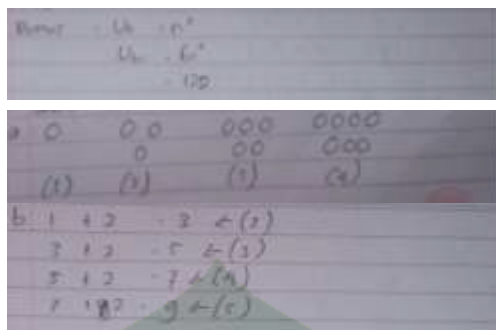 Rumus = Un = n²
U6 = 6²
= 120
a 0 00 000 0000
0 00 000
(1) (2) (3) (4)
b 1 + 2 = 3 ← (2)
3 + 2 = 5 ← (3)
5 + 2 = 7 ← (4)
7 + 2 = 9 ← (5)